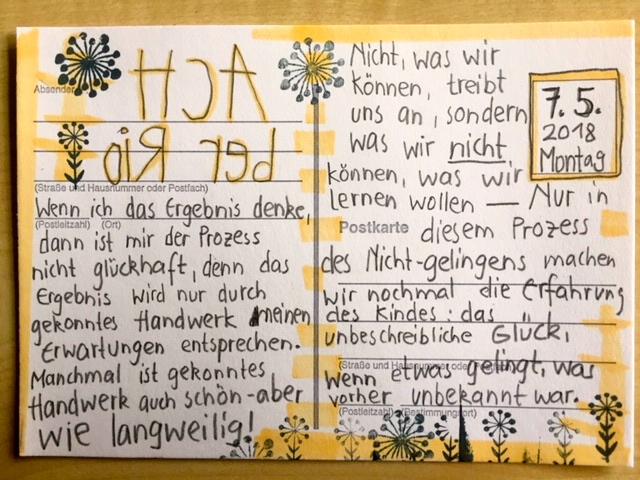 ACH
der Rio
Absender
(Straße und Hausnummer oder Postfach)
Wenn ich das Ergebnis denke,
(Postleitzahl) (Ort)
dann ist mir der Prozess
nicht glückhaft, denn das
Ergebnis wird nur durch
gekonntes Handwerk meinen
Erwartungen entsprechen.
Manchmal ist gekonntes
Handwerk auch schön - aber
wie langweilig!
Nicht, was wir
können, treibt
uns an, sondern
was wir nicht
können, was wir
lernen wollen — Nur in
Postkarte
diesem Prozess
des Nicht-gelingens machen
wir nochmal die Erfahrung
des Kindes: das
unbeschreibliche Glück,
(Straße und Hausnummer oder Postfach)
wenn etwas gelingt, was
vorher unbekannt war.
(Postleitzahl) (Bestimmungsort)
7.5.
2018
Montag